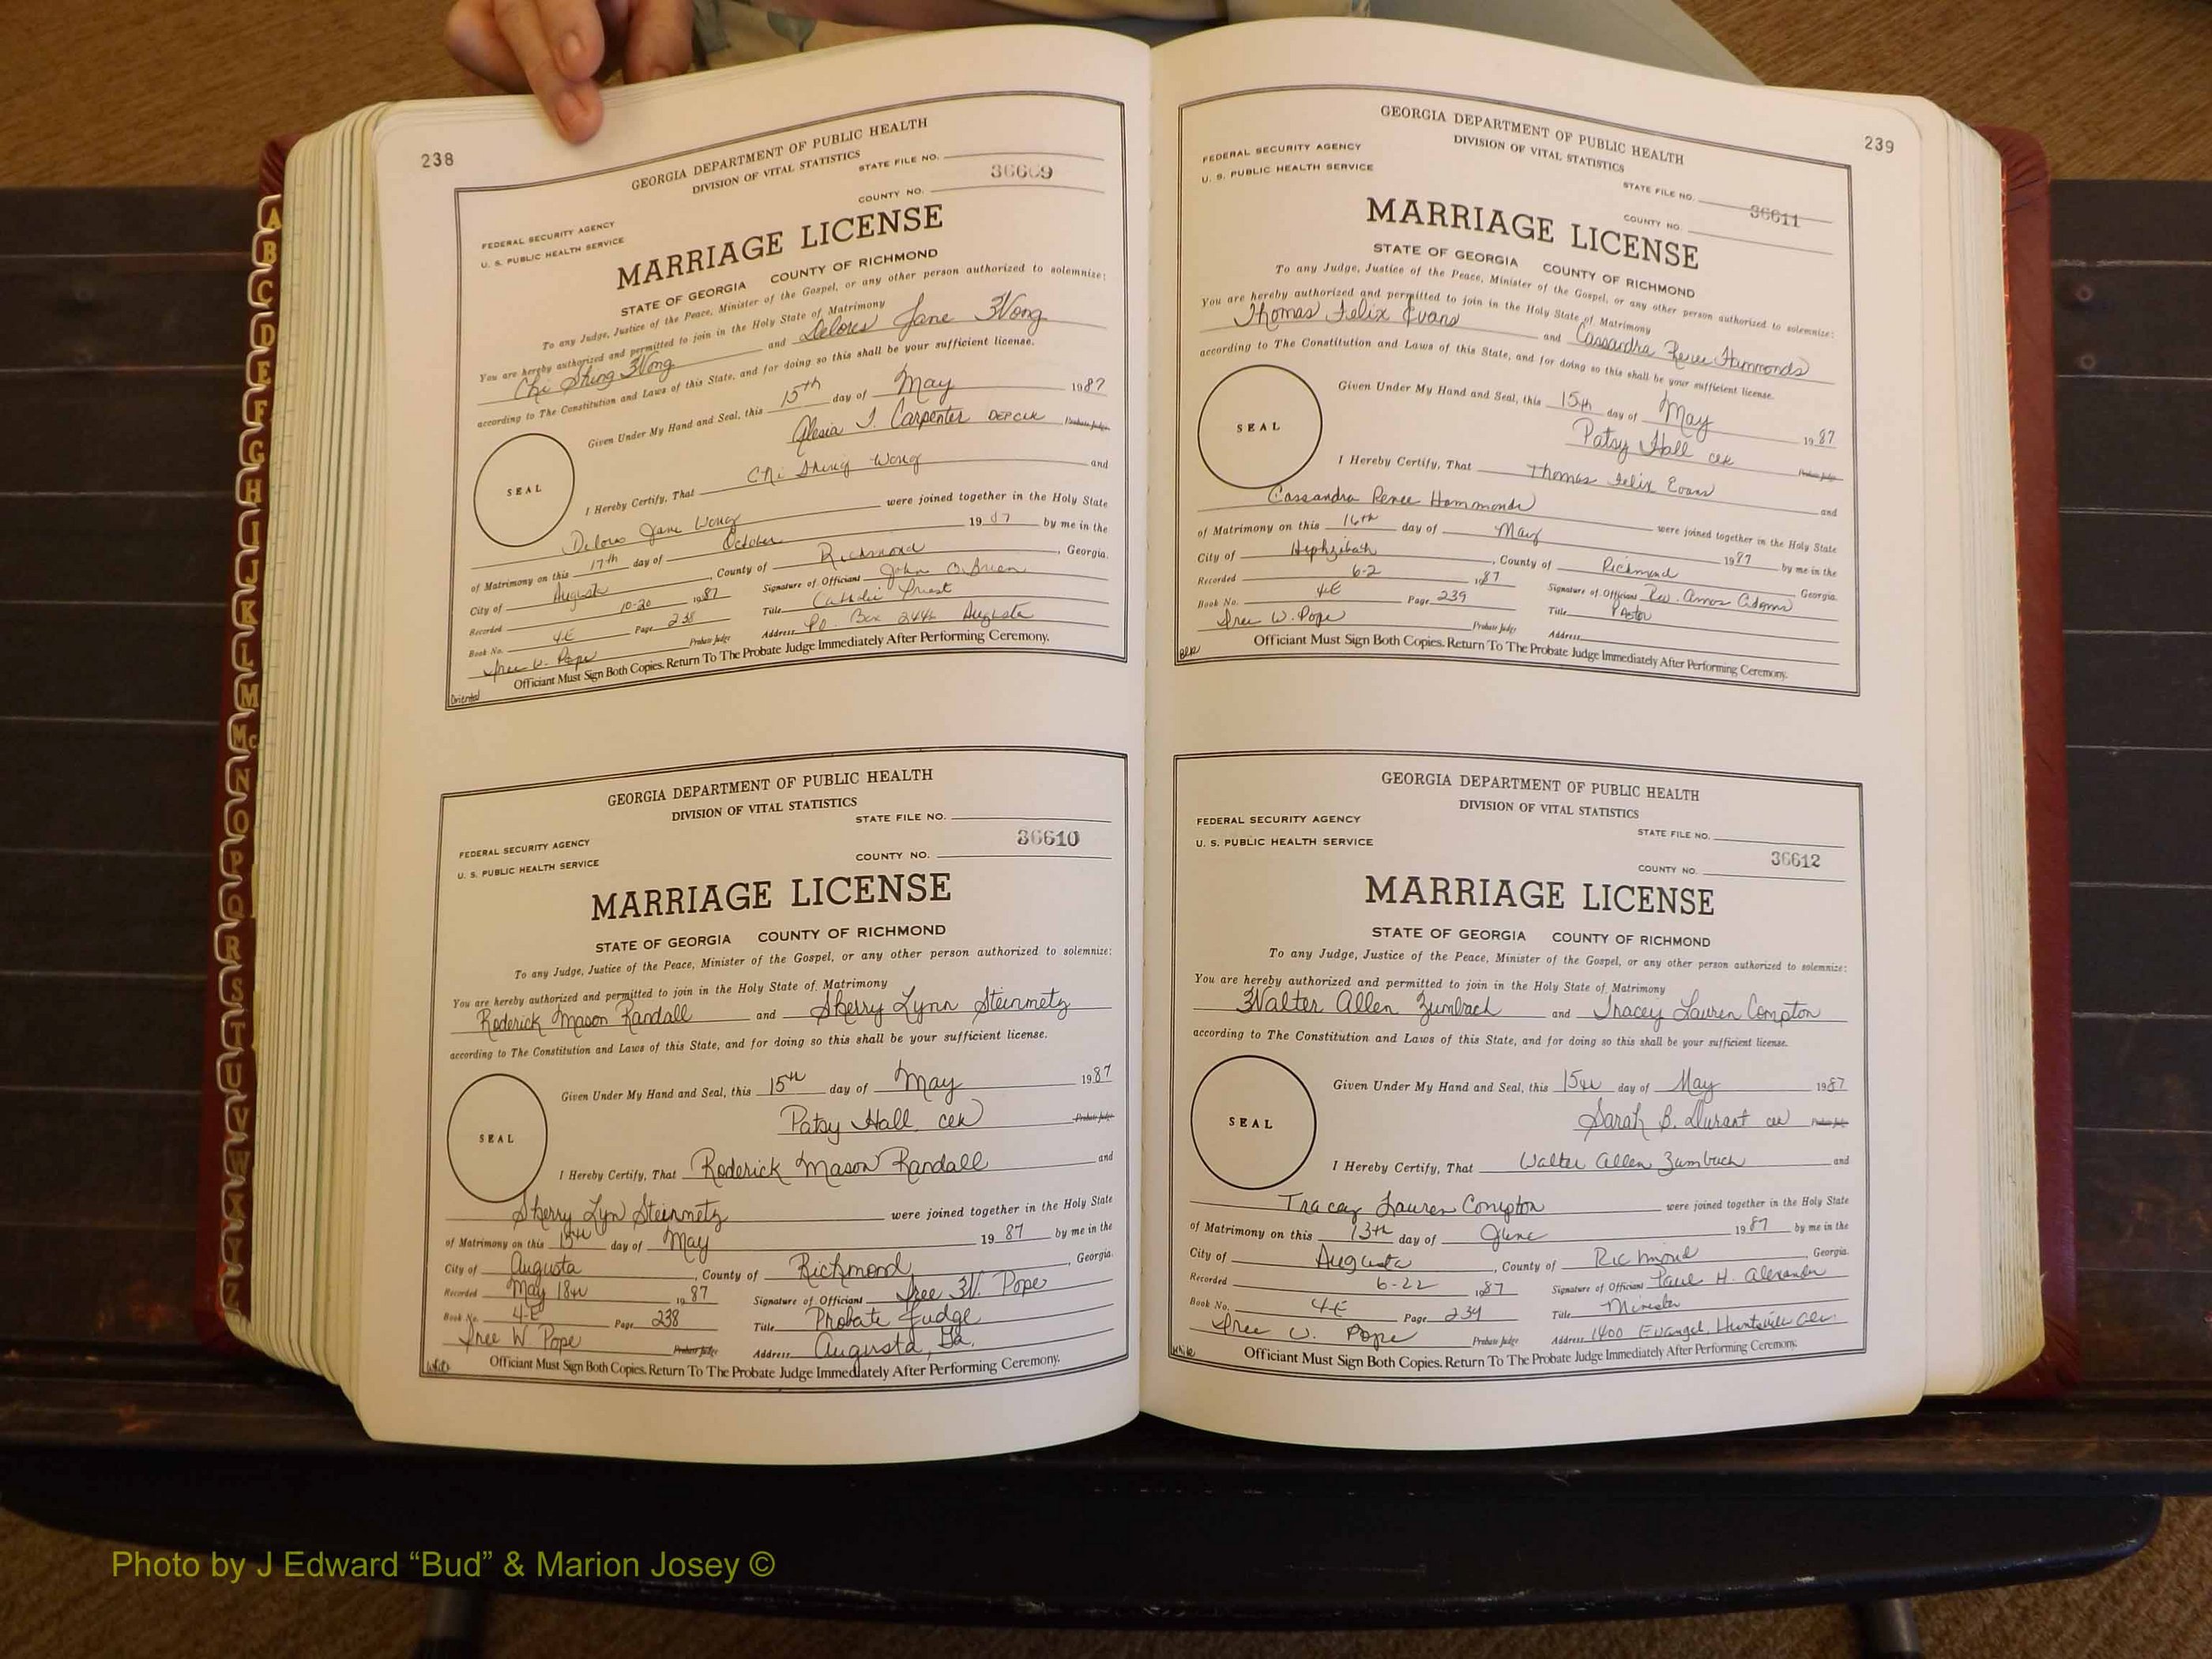 238
GEORGIA DEPARTMENT OF PUBLIC HEALTH
DIVISION OF VITAL STATISTICS
STATE FILE NO.
36609
COUNTY NO.
FEDERAL SECURITY AGENCY
U. S. PUBLIC HEALTH SERVICE
MARRIAGE LICENSE
STATE OF GEORGIA COUNTY OF RICHMOND
To any Judge, Justice of the Peace, Minister of the Gospel, or any other person authorized to solemnize:
You are hereby authorized and permitted to join in the Holy State of Matrimony
Chi Shing Wong and Delores Jane Wong
according to The Constitution and Laws of this State, and for doing so this shall be your sufficient license.
Given Under My Hand and Seal, this 15th day of May 1987
Alesia J. Carpenter DEPCLK Probate Judge
SEAL
I Hereby Certify, That Chi Shing Wong and
Delores Jane Wong were joined together in the Holy State
of Matrimony on this 17th day of October 1987 by me in the
City of Augusta, County of Richmond, Georgia.
Recorded 10-20 1987 Signature of Officiant John O'Brien
Book No. 4E Page 238 Title Catholic Priest
Probate Judge Address P.O. Box 2446 Augusta
Officiant Must Sign Both Copies. Return To The Probate Judge Immediately After Performing Ceremony.
Oriental
GEORGIA DEPARTMENT OF PUBLIC HEALTH
DIVISION OF VITAL STATISTICS
STATE FILE NO.
36610
COUNTY NO.
FEDERAL SECURITY AGENCY
U. S. PUBLIC HEALTH SERVICE
MARRIAGE LICENSE
STATE OF GEORGIA COUNTY OF RICHMOND
To any Judge, Justice of the Peace, Minister of the Gospel, or any other person authorized to solemnize:
You are hereby authorized and permitted to join in the Holy State of Matrimony
Roderick Mason Randall and Sherry Lynn Steinmetz
according to The Constitution and Laws of this State, and for doing so this shall be your sufficient license.
Given Under My Hand and Seal, this 15th day of May 1987
Patsy Hall clk Probate Judge
SEAL
I Hereby Certify, That Roderick Mason Randall and
Sherry Lyn Steinmetz were joined together in the Holy State
of Matrimony on this 15th day of May 1987 by me in the
City of Augusta, County of Richmond, Georgia.
Recorded May 18th 1987 Signature of Officiant Iree W. Pope
Book No. 4-E Page 238 Title Probate Judge
Iree W Pope Probate Judge Address Augusta, Ga.
Officiant Must Sign Both Copies. Return To The Probate Judge Immediately After Performing Ceremony.
White
239
GEORGIA DEPARTMENT OF PUBLIC HEALTH
DIVISION OF VITAL STATISTICS
FEDERAL SECURITY AGENCY
U. S. PUBLIC HEALTH SERVICE
STATE FILE NO.
36611
COUNTY NO.
MARRIAGE LICENSE
STATE OF GEORGIA COUNTY OF RICHMOND
To any Judge, Justice of the Peace, Minister of the Gospel, or any other person authorized to solemnize:
You are hereby authorized and permitted to join in the Holy State of Matrimony
Thomas Felix Evans and Cassandra Renee Hammonds
according to The Constitution and Laws of this State, and for doing so this shall be your sufficient license.
Given Under My Hand and Seal, this 15th day of May 1987
Patsy Hall clk Probate Judge
SEAL
I Hereby Certify, That Thomas Felix Evans and
Cassandra Renee Hammonds were joined together in the Holy State
of Matrimony on this 16th day of May 1987 by me in the
City of Hephzibah, County of Richmond, Georgia.
Recorded 6-2 1987 Signature of Officiant Rev. Amos Adams
Book No. 4E Page 239 Title Pastor
Iree W. Pope Probate Judge Address
Officiant Must Sign Both Copies. Return To The Probate Judge Immediately After Performing Ceremony.
Blk
GEORGIA DEPARTMENT OF PUBLIC HEALTH
DIVISION OF VITAL STATISTICS
FEDERAL SECURITY AGENCY
U. S. PUBLIC HEALTH SERVICE
STATE FILE NO.
36612
COUNTY NO.
MARRIAGE LICENSE
STATE OF GEORGIA COUNTY OF RICHMOND
To any Judge, Justice of the Peace, Minister of the Gospel, or any other person authorized to solemnize:
You are hereby authorized and permitted to join in the Holy State of Matrimony
Walter Allen Zumbach and Tracey Lauren Compton
according to The Constitution and Laws of this State, and for doing so this shall be your sufficient license.
Given Under My Hand and Seal, this 15th day of May 1987
Sarah B. Durant clk Probate Judge
SEAL
I Hereby Certify, That Walter Allen Zumbach and
Tracey Lauren Compton were joined together in the Holy State
of Matrimony on this 13th day of June 1987 by me in the
City of Augusta, County of Richmond, Georgia.
Recorded 6-22 1987 Signature of Officiant Paul H. Alexander
Book No. 4-E Page 239 Title Minister
Iree W. Pope Probate Judge Address 1400 Evangel, Huntsville
Officiant Must Sign Both Copies. Return To The Probate Judge Immediately After Performing Ceremony.
White
A
B
C
D
E
F
G
H
I
J
K
L
M
Mc
N
O
P
Q
R
S
T
U
V
W
X
Y
Z
Photo by J Edward “Bud” & Marion Josey ©